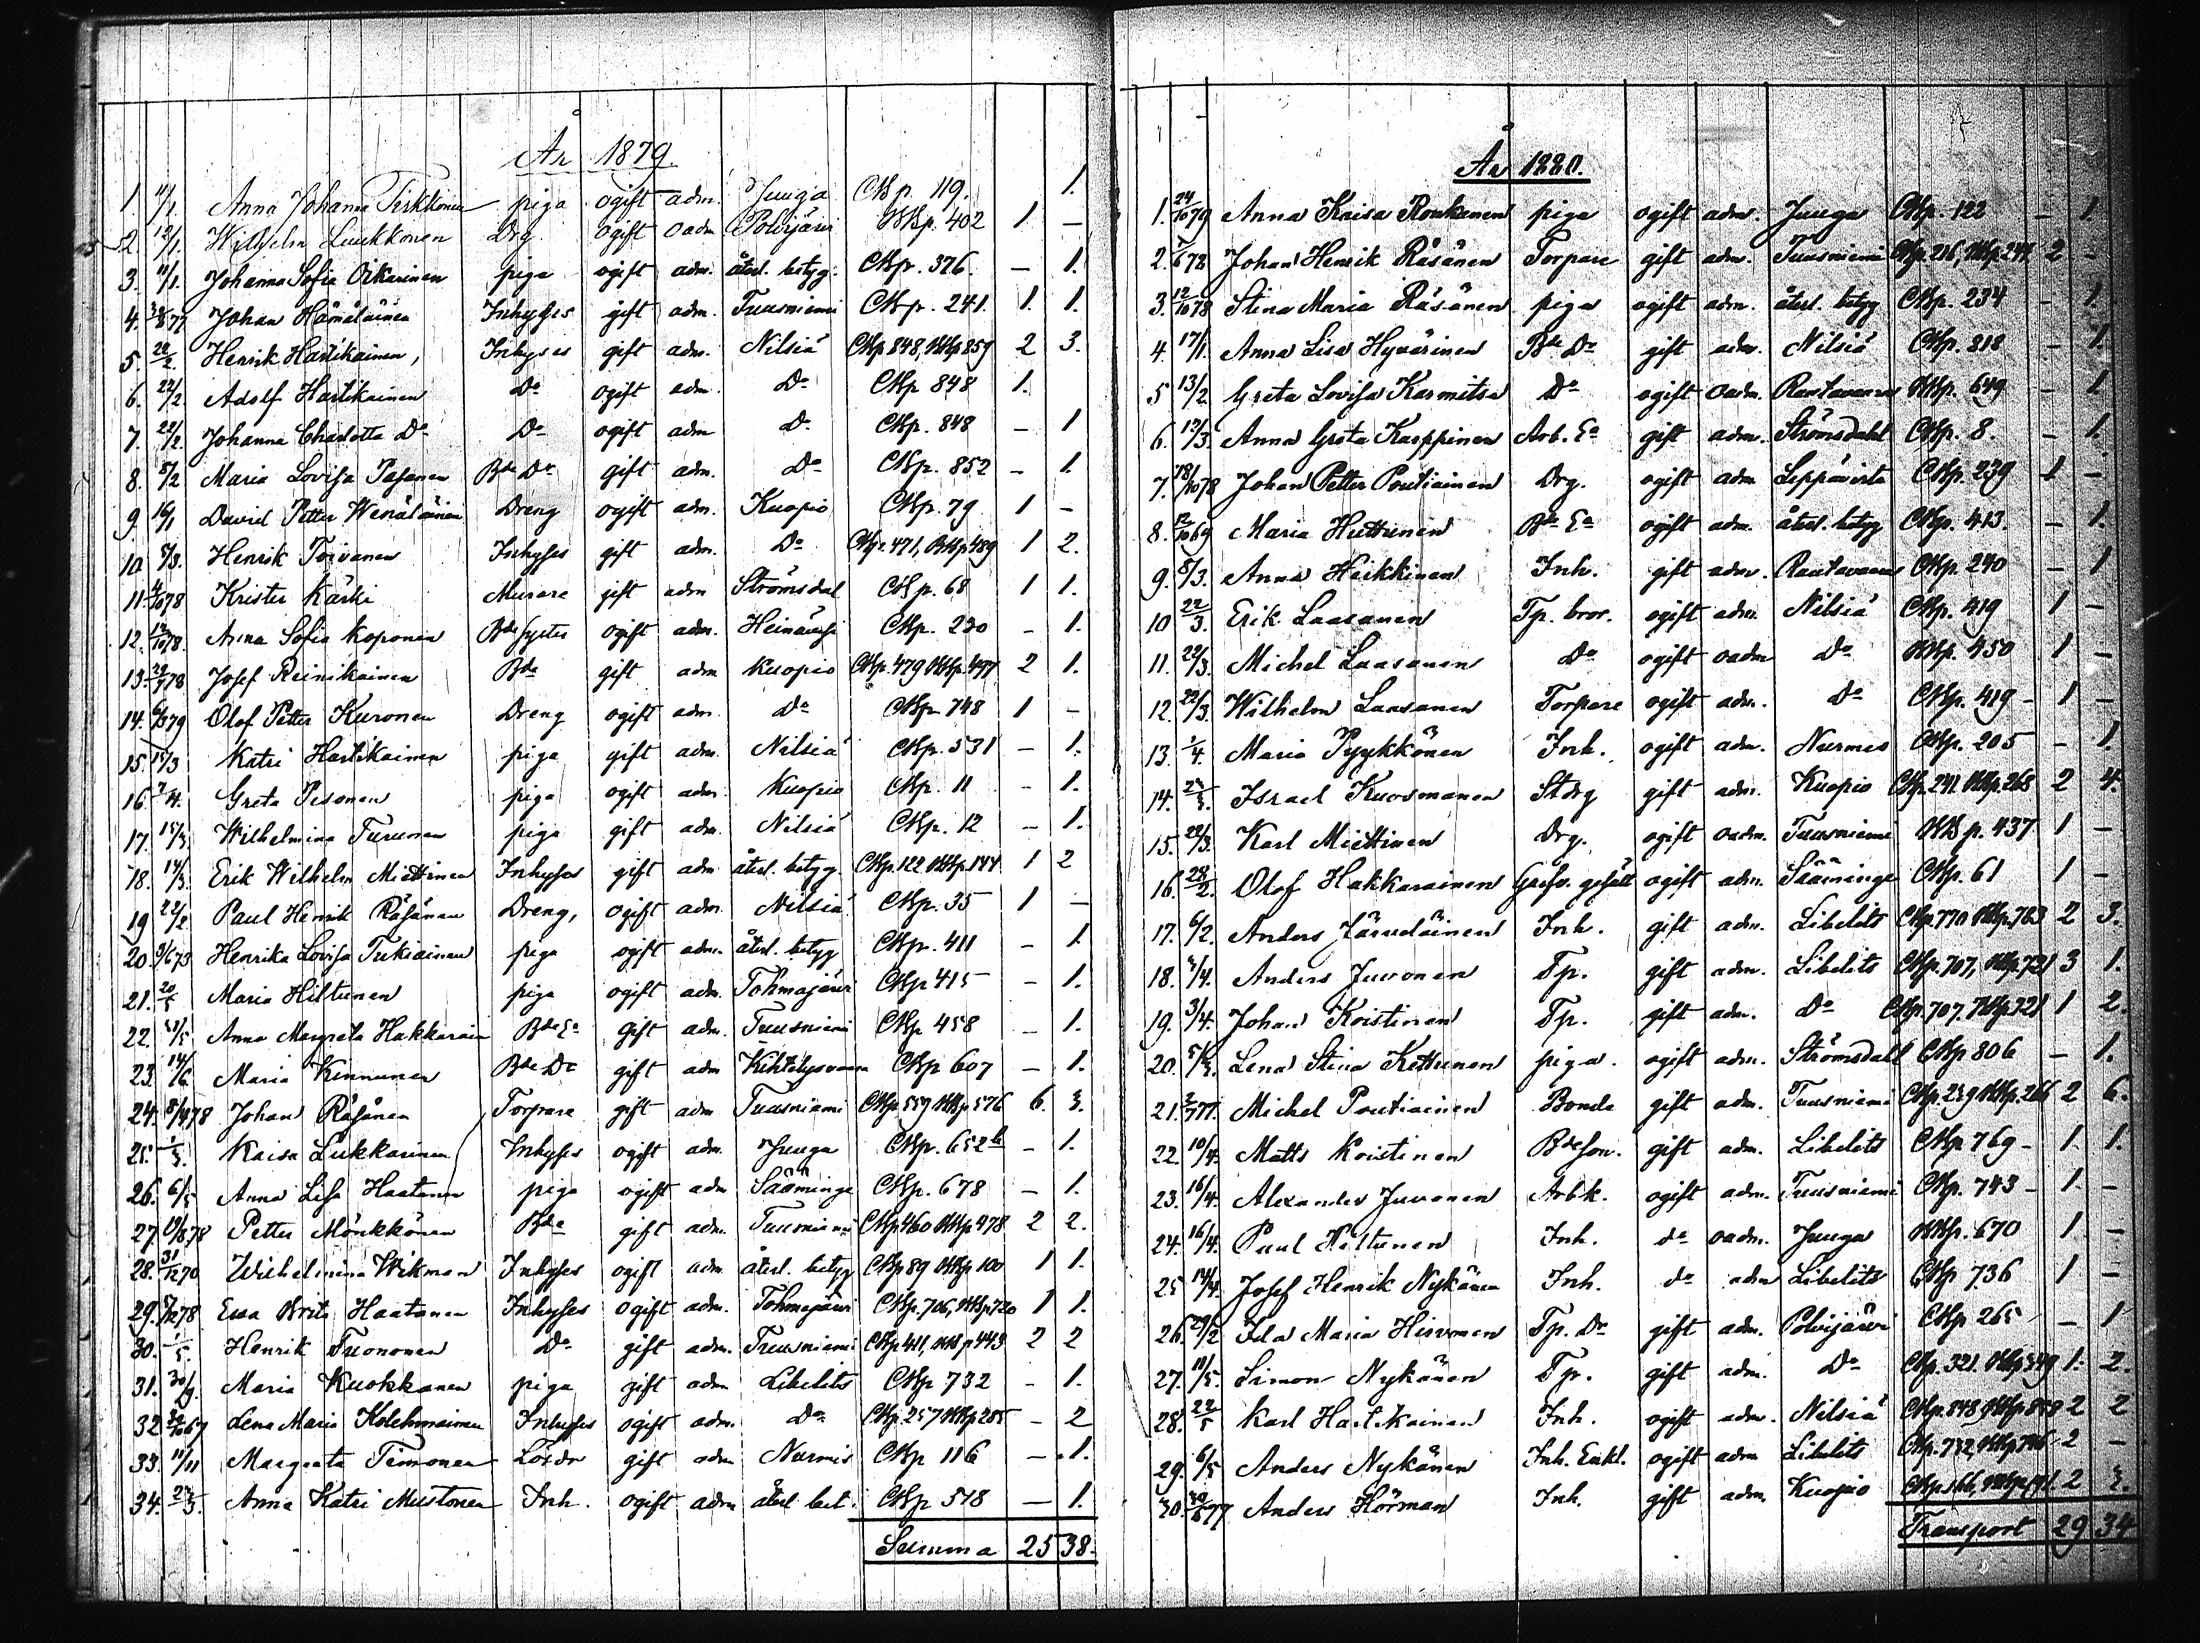 År 1879.
1. 11/1. Anna Johanna Tirkkonen piga ogift adm. Juuga CKp. 119. 1.
2. 12/1. Wilhelm Luukkonen Drg. ogift oadm Polvijärvi OKKp. 402 1 —
3. 11/1. Johanna Sofia Oikarinen piga ogift adm. återl. betyg. CKp. 376. — 1.
4. Johan Hämäläinen Inhyses gift adm. Tuusniemi CKp. 241. 1. 1.
5. Henrik Hartikainen, Inhyses gift adm. Nilsiä CKp 848, OKKp 859 2 3.
6. 22/2. Adolf Hartikainen Do ogift adm. Do CKp 848 1.
7. 22/2. Johanna Charlotta Do Do ogift adm Do CKp. 848 — 1
8. 8/2 Maria Lovisa Pasanen Bde Dr gift adm. Do CKp. 852 — 1.
9. David Petter Wenäläinen Dreng ogift adm. Kuopio CKp. 79 1 —
10 Henrik Toivanen Inhyses gift adm. Do CKp. 471, OKKp 489 1 2.
11. Krister Kärki Murare gift adm Strömsdal CKp. 68 1 1.
12. Anna Sofia Koponen Bde syster ogift adm. Heinävesi CKp. 230 — 1.
13. Josef Reinikainen Bde gift adm Kuopio CKp. 479 OKKp. 497 2 1.
14. Olof Petter Kuronen Dreng ogift adm. Do CKp. 748 1 —
15. 15/3 Katri Hartikainen piga gift adm. Nilsiä CKp. 531 — 1.
16. Greta Pesonen piga ogift adm. Kuopio CKp. 11 — 1.
17. Wilhelmina Turunen piga gift adm. Nilsiä CKp. 12 — 1.
18. 14/3. Erik Wilhelm Miettinen Inhyses gift adm återl. betyg. CKp. 122 OKKp. 144 1 2
19 22/2 Paul Henrik Räsänen Dreng, ogift adm. Nilsiä CKp. 35 1 —
20. Henrika Lovisa Tukiainen piga ogift adm. återl. betyg CKp. 411 — 1.
21. 20/5 Maria Hiltunen piga ogift adm. Tohmajärvi CKp 415 — 1.
22. Anna Margreta Hakkarain Bde Ea gift adm. Tuusniemi CKp 458 — 1.
23. 14/6 Maria Kinnunen Bde Dr gift adm Kihtelysvaara CKp 607 — 1.
24. Johan Räsänen Torpare gift adm Tuusniemi CKp. 557 OKKp. 576 6. 3.
25. 1/5. Kaisa Lukkarinen Inhyses ogift adm. Juuga CKp. 652b — 1.
26. 6/5 Anna Lisa Haatanen piga ogift adm Sääminge CKp. 678 — 1.
27. Petter Mönkkönen Bde gift adm. Tuusniemi CKp 460 OKKp 478 2 2.
28. 31/12 70 Wilhelmina Wikman Inhyses ogift adm återl. betyg CKp 89 OKKp 100 1 1.
29. Eva Brita Haatanen Inhyses ogift adm. Tohmajärvi CKp. 706, OKKp. 720 1 1.
30. 1/5. Henrik Tuononen Do gift adm. Tuusniemi CKp 411, OKKp 443 2 2
31. 30/9. Maria Kuokkanen piga gift adm Libelits CKp 732 — 1.
32 Lena Maria Kolehmainen Inhyses ogift adm. Do CKp. 257 OKKp 285 — 2
33. 11/11 Margreta Timonen Lösdr gift adm Nurmis CKp 116 — 1.
34. Anna Katri Mustonen Inh. ogift adm återl. bet. CKp 518 — 1.
Summa 25 38.
År 1880.
1. 24/10 79 Anna Kaisa Ronkanen piga ogift adm. Juuga CKp. 122 — 1.
2. Johan Henrik Räsänen Torpare gift adm. Tuusniemi CKp. 216, OKKp. 241 2 —
3. 12/10 78 Stina Maria Räsänen piga ogift adm. återl. betyg CKp. 234 — 1.
4. 17/1. Anna Lisa Hyvärinen Bde Dr gift adm. Nilsiä CKp. 818 — 1.
5 13/2. Greta Lovisa Karmitsa Do ogift oadm. Rautavaara OKKp. 649 — 1
6. 12/3. Anna Greta Karppinen Arb. Ea gift adm. Strömsdahl CKp. 8. — 1.
7. 18/10 78 Johan Petter Poutiainen Drg. ogift adm Leppävirta CKp. 239 1 —
8. 12/10 69 Maria Huttunen Bde Ea ogift adm. återl. betyg CKp. 413. — 1.
9. 8/3. Anna Heikkinen Inh. gift adm. Rautavaara CKp. 240 — 1
10 22/3. Erik Laasanen Tp. bror. ogift adm. Nilsiä CKp. 419 1 —
11. 22/3. Michel Laasanen Do ogift oadm Do OKKp. 450 1 —
12. 22/3. Wilhelm Laasanen Torpare ogift adm. Do CKp. 419 — 1 —
13. 1/4. Maria Pyykkönen Inh. ogift adm. Nurmes CKp. 205 — 1.
14. Israel Kuosmanen Stdrg gift adm. Kuopio CKp. 241 OKKp. 268 2 4.
15. 22/3. Karl Miettinen Drg. ogift oadm. Tuusniemi OKKp. 437 1 —
16. 28/2. Olof Hakkarainen Gjutr. gesäll ogift adm. Sääminge CKp. 61 1 —
17. 6/2. Anders Järveläinen Inh. gift adm. Libelits CKp. 770 OKKp. 763 2 3.
18. Anders Juvonen Tp. gift adm. Libelits CKp. 707, OKKp. 721 3 1.
19. 3/4. Johan Koistinen Tp. gift adm. Do CKp. 707. OKKp 321 1 2.
20. Lena Stina Kettunen piga. ogift adm. Strömsdahl CKp 806 — 1.
21. Michel Poutiainen Bonde gift adm. Tuusniemi CKp. 239 OKKp. 266 2 6.
22. 10/4. Matts Koistinen Bde son. gift adm. Libelits CKp. 769 — 1. 1.
23. 16/4. Alexander Juvonen Arbk. ogift adm. Tuusniemi CKp. 743 1 —
24. 16/4. Paul Hiltunen Inh. do oadm. Juuga OKKp. 670 1 —
25 14/4. Josef Henrik Nykänen Inh. do adm Libelits CKp 736 1 —
26. 29/2 Ida Maria Hirvonen Tp. Dr gift adm. Polvijärvi CKp 265 — 1
27. Simon Nykänen Tp. gift adm. Do CKp. 321. OKKp 339 1. 2.
28. 22/5 Karl Hartikainen Inh. ogift adm. Nilsiä CKp. 848 OKKp 859 2 2
29. 6/5 Anders Nykänen Inh. Enkl. ogift adm Libelits CKp. 732, OKKp. 746 2 —
30. Anders Hörman Inh. gift adm. Kuopio 2 3.
Transport 29 34